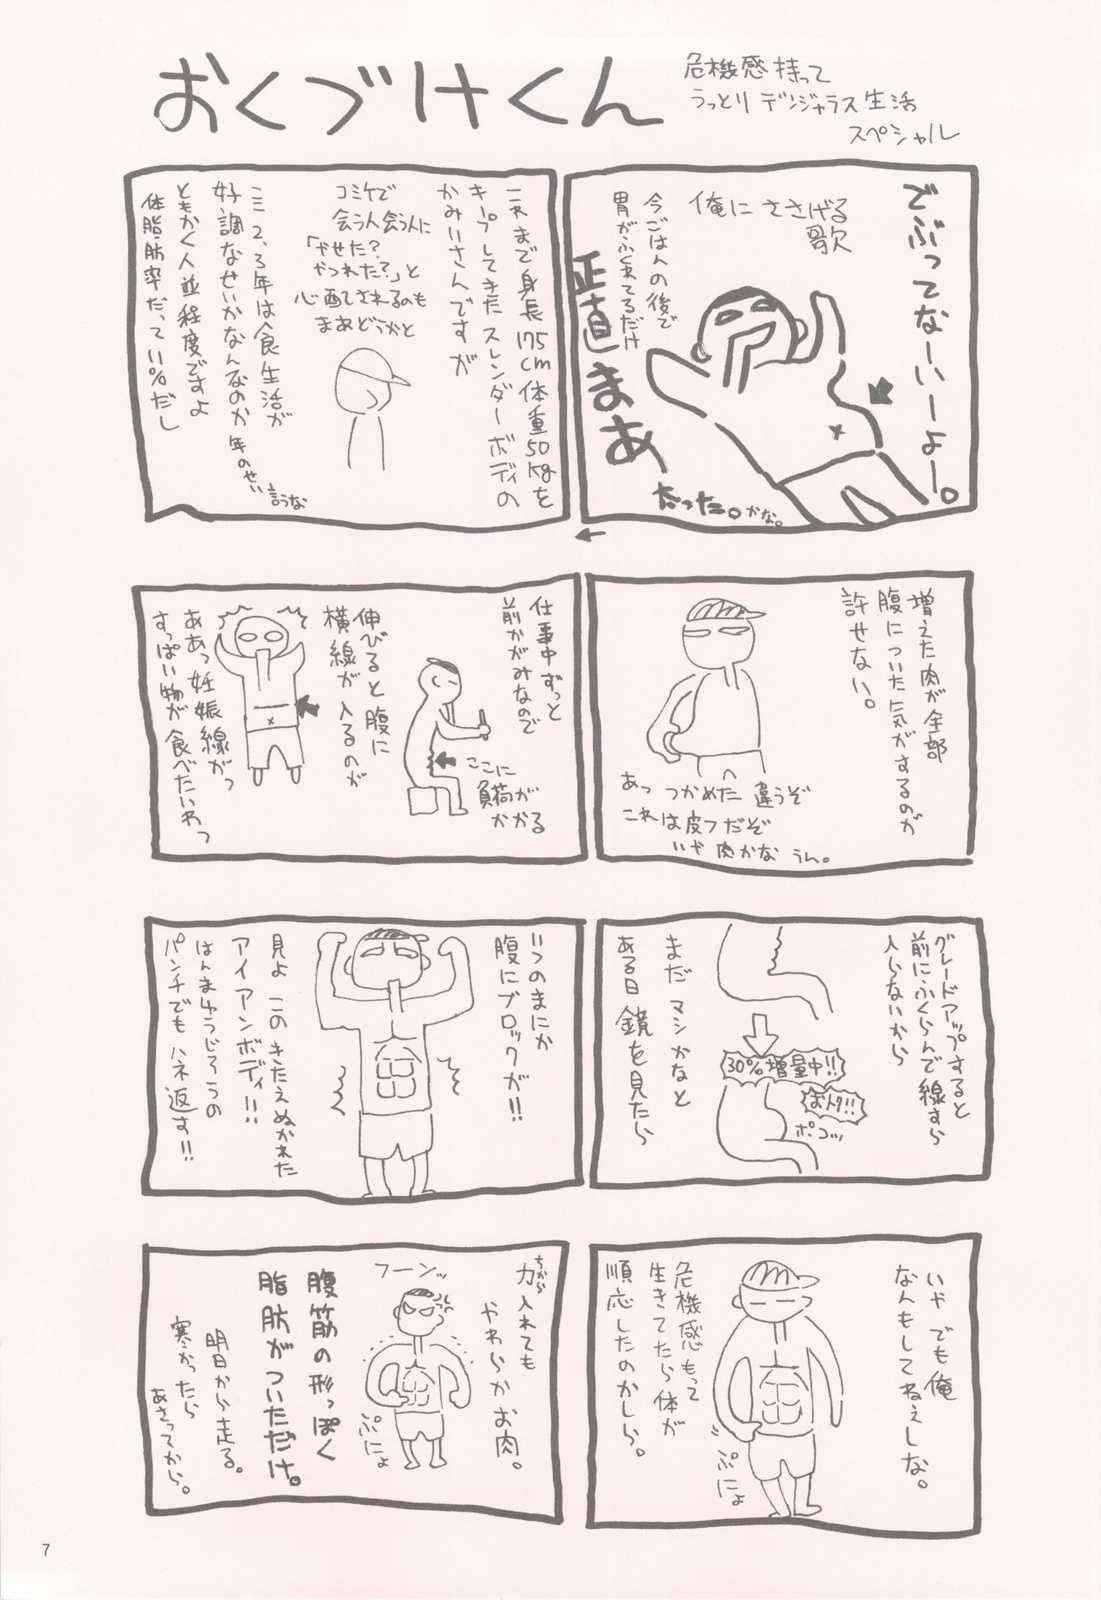 おくづけくん
危機感持って
うっとりデンジャラス生活
スペシャル
でぶってなーいーよー。
俺にささげる
歌
今ごはんの後で
胃がふくれてるだけ
正直まあ
だった。かな。
これまで身長175cm体重50kgを
キープしてきたスレンダーボディの
かみいさんですが
コミケで
会う人会う人に
「やせた?
やつれた?」と
心配されるのも
まあどうかと
ここ2、3年は食生活が
好調なせいかなんなのか年のせい
言うな
ともかく人並程度ですよ
体脂肪率だって11%だし
増えた肉が全部
腹についた気がするのが
許せない。
あっつかめた違うぞ
これは皮フだぞ
いや肉かなうん。
仕事中ずっと
前かがみなので
ここに
負荷が
かかる
伸びると腹に
横線が入るのが
ああっ妊娠線がっ
すっぱい物が食べたいわっ
グレードアップすると
前にふくらんで線すら
入らないから
30%増量中!!
おトク!!
ポコッ
まだマシかなと
ある日鏡を見たら
いつのまにか
腹にブロックが!!
見よこのきたえぬかれた
アイアンボディ!!
はんまゆうじろうの
パンチでもハネ返す!!
いやでも俺
なんもしてねえしな。
ぷにょ
危機感もって
生きてたら体が
順応したのかしら。
ちから
力入れても
やわらかお肉。
フーンッ
ぷにょ
腹筋の形っぽく
脂肪がついただけ。
明日から走る。
寒かったら
あさってから。
7